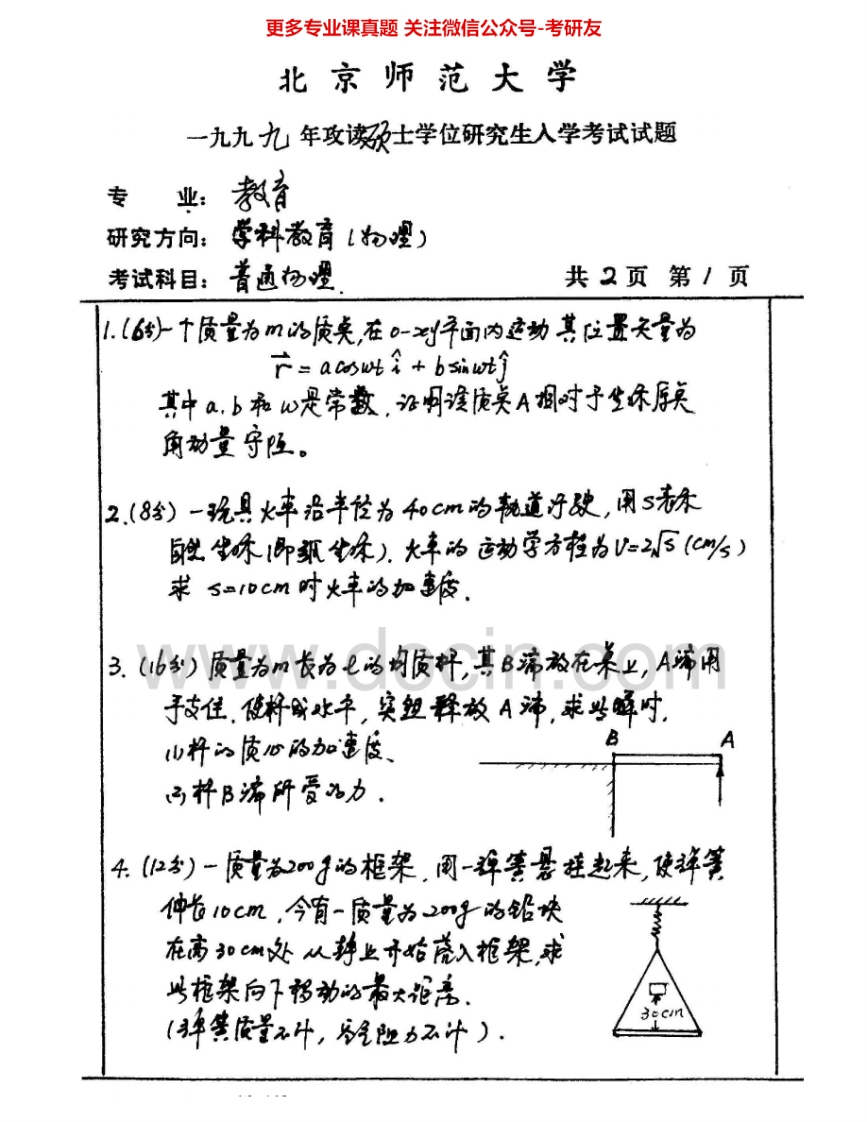 更多专业课真题 关注微信公众号-考研友
北京师范大学
一九九九年攻读硕士学位研究生入学考试试题
专 业: 教育
研究方向: 学科教育(物理)
考试科目: 普通物理.
共2页 第1页
1.(6分)一个质量为m的质点,在o-xy平面内运动 其位置矢量为
r⃗ = acosωt î + bsinωt ĵ
其中a,b和ω是常数,证明该质点A相对于坐标原点
角动量守恒。
2.(8分) 一玩具火车沿半径为40cm的轨道行驶,用S表示
自然坐标(即弧坐标).火车的运动学方程为V=2√S (cm/s)
求 S=10cm时火车的加速度.
www.docin.com
3. (16分) 质量为m长为l的均质杆,其B端放在桌上,A端用
手支住,使杆成水平,突然释放A端,求此瞬时.
(1)杆的质心的加速度、
(2)杆B端所受的力.
B A
4. (12分) 一质量为200g的框架,用一弹簧悬挂起来,使弹簧
伸长10cm,今有一质量为200g的铅块
在高30cm处从静止开始落入框架,求
此框架向下移动的最大距离.
(弹簧质量不计,空气阻力不计).
30cm